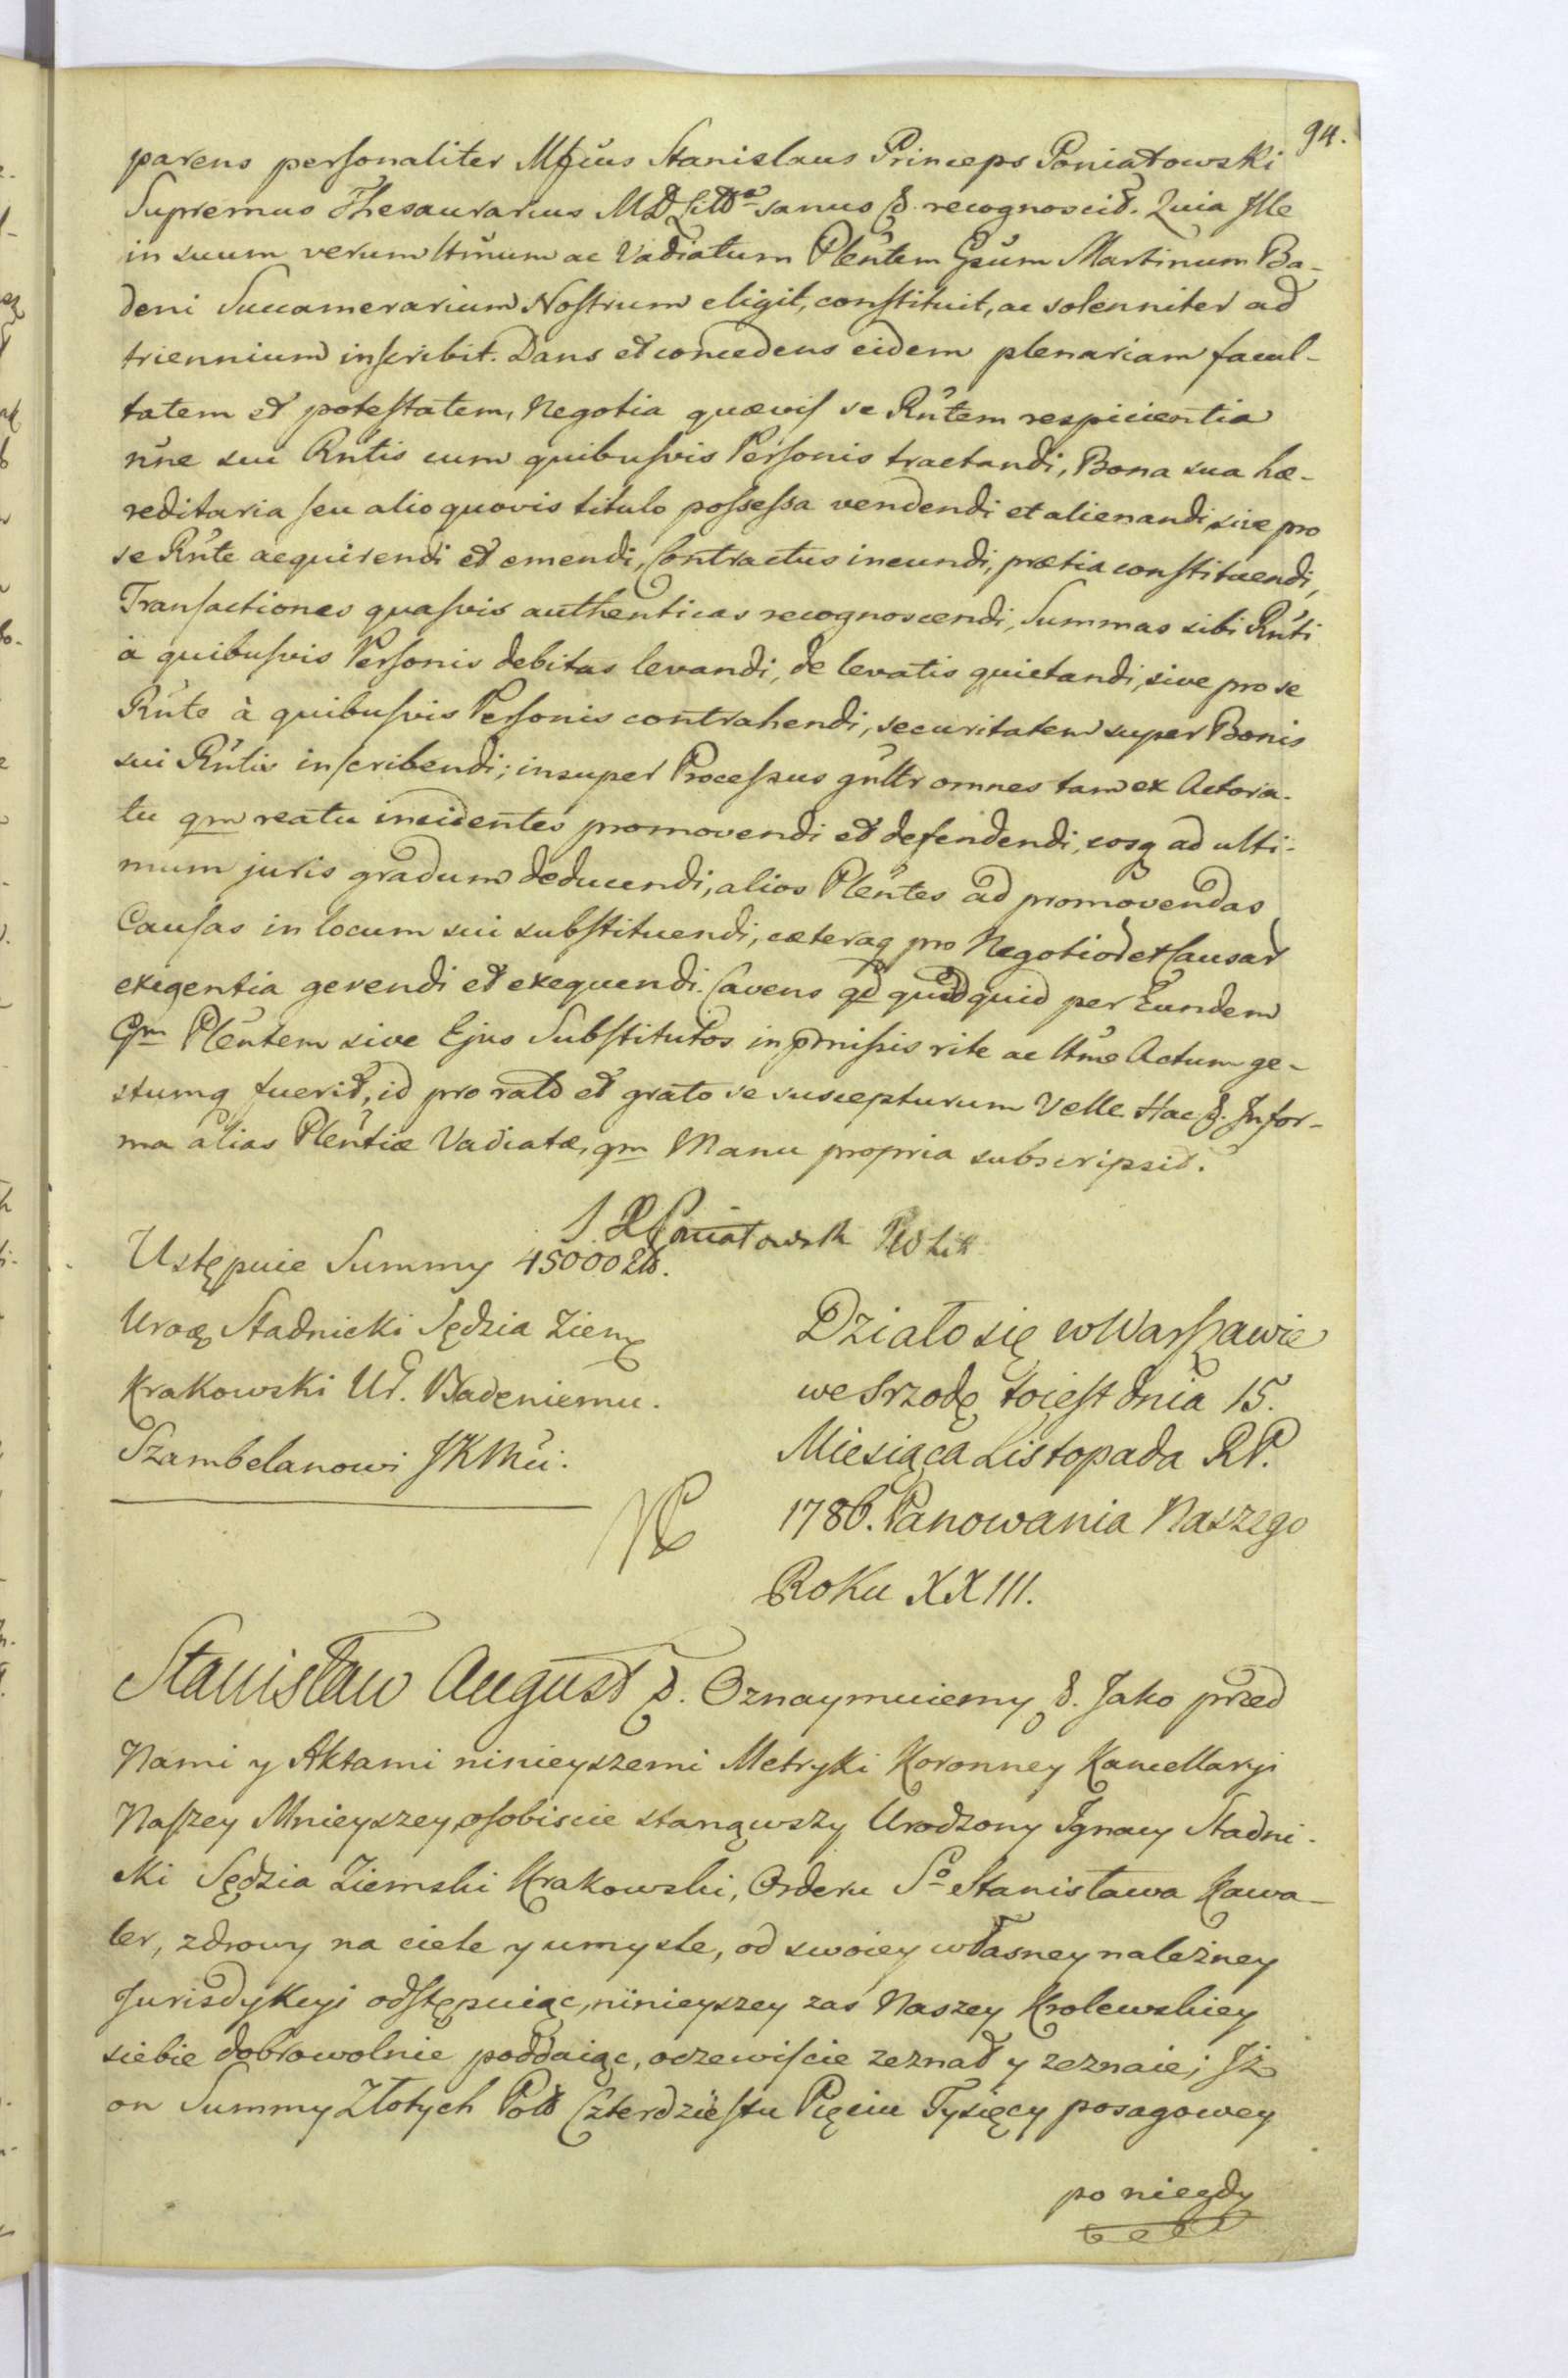 94.
parens personaliter Mfcus Stanislaus Princeps Poniatowski
Supremus Thesaurarius MDLittd sanus &. recognoscit. Quia Ille
in suum verum ltmum ac Vadiatum Plentem Gsum Martinum Ba-
deni Succamerarium Nostrum eligit, constituit, ac solenniter ad
triennium inscribit. Dans et concedens eidem plenariam facul-
tatem et potestatem, Negotia quævis se Rntem respicientia
nne sui Rntis cum quibusvis Personis tractandi, Bona sua hæ-
reditaria seu alio quovis titulo possessa vendendi et alienandi, sive pro
se Rnte acquirendi et emendi, Contractus ineundi, prætia constituendi,
Transactiones quasvis authenticas recognoscendi, Summas sibi Rnti
à quibusvis Personis debitas levandi, de levatis quietandi, sive pro se
Rnte à quibusvis Personis contrahendi, securitatem super Bonis
sui Rntis inscribendi; insuper Processus gnltr omnes tam ex Actoria-
tu qm reatu incidentes promovendi et defendendi, eosq ad ulti-
mum juris gradum deducendi, alios Plentes ad promovendas
Causas in locum sui substituendi, cæteraq pro Negotior et Causar
exigentia gerendi et exequendi. Cavens qd quidquid per Eundem
Gm Plentem sive Ejus Substitutos in pmissis rite ac ltme Actum ge-
stumq fuerit, id pro rato et grato se suscepturum velle Hac &. Infor-
ma alias Plentiæ Vadiatæ, qm Manu propria subscripsit.
S. X Poniatowski
Ustępuie Summy 45000 Zł.
Uroę Stadnicki Sędzia Ziem
Krakowski Ur. Badeniemu.
Szambelanowi JKMci.
Działo się w Warszawie
we Srzodę toiest dnia 15.
Miesiąca Listopada RP.
1786. Panowania Naszego
Roku XXIII.
Stanisław August &. Oznaymuiemy &. Jako przed
Nami y Aktami ninieyszemi Metryki Koronney Kancellaryi
Naszey Mnieyszey, osobiscie stanąwszy Urodzony Ignacy Stadni-
cki Sędzia Ziemski Krakowski, Orderu So Stanisława Kawa-
ler, zdrowy na ciele y umysle, od swoiey własney należney
Jurisdykcyi odstępuiąc, ninieyszey zas Naszey Krolewskiey
siebie dobrowolnie poddaiąc, oczewiscie zeznał y zeznaie; Iż
on Summy Złotych Pols Czterdziestu Pięciu Tysięcy posagowey
po niegdy